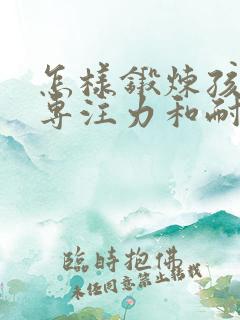 怎样锻炼孩
专注力和耐
臨時抱佛
未经同意禁止转载